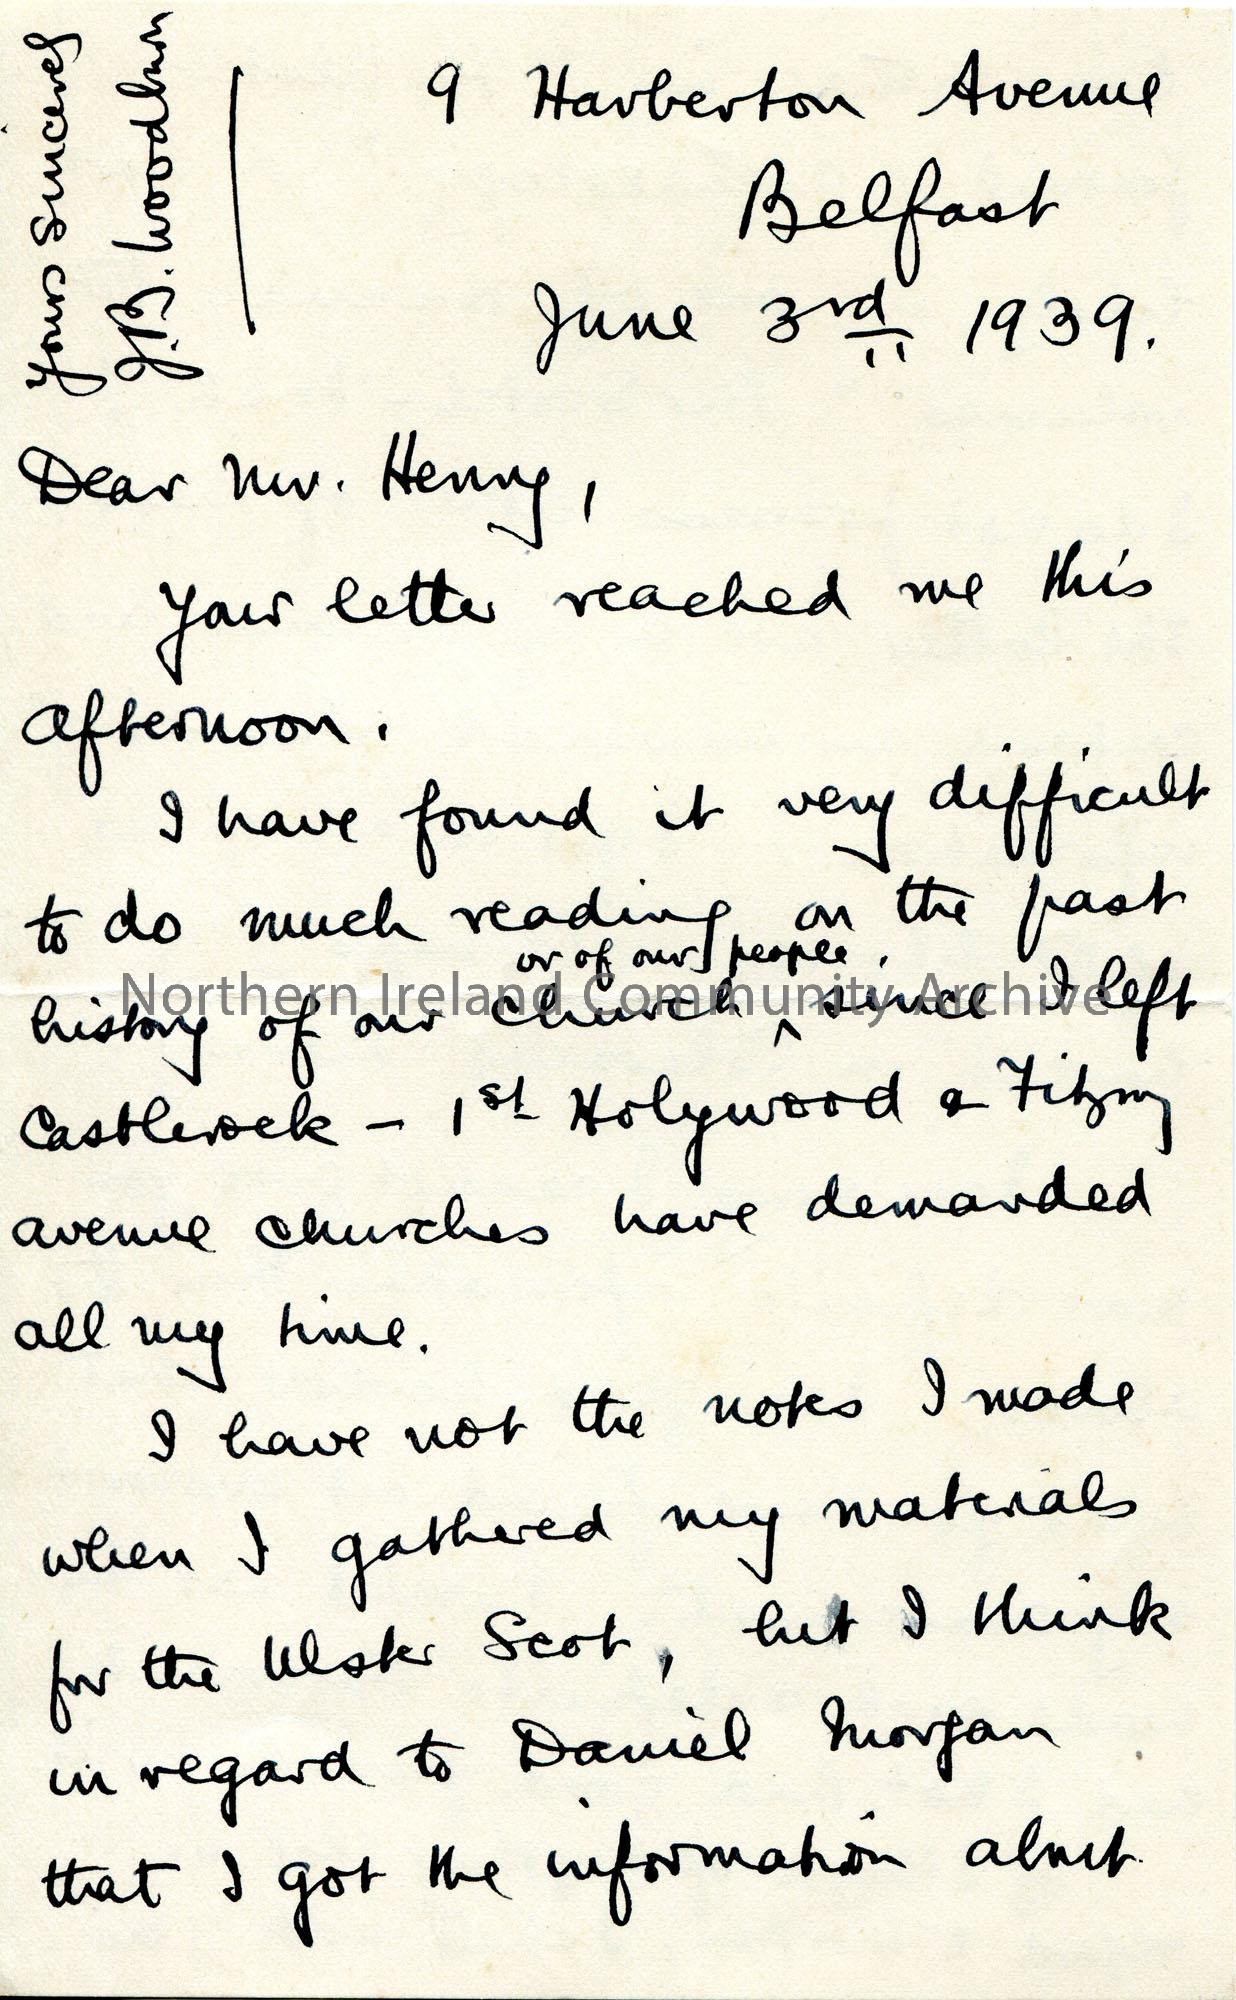 9 Harberton Avenue
Belfast
June 3rd 1939.
Dear Mr. Henry,
Your letter reached me this
afternoon.
I have found it very difficult
to do much reading on the past
or of our people,
history of our church ^ since I left
Castlerock - 1st Holywood & Fitzroy
avenue churches have demanded
all my time.
I have not the notes I made
when I gathered my materials
for the Ulster Scot, but I think
in regard to Daniel Morgan
that I got the information about
Yours Sincerely
J.B. Woodburn
Northern Ireland Community Archive